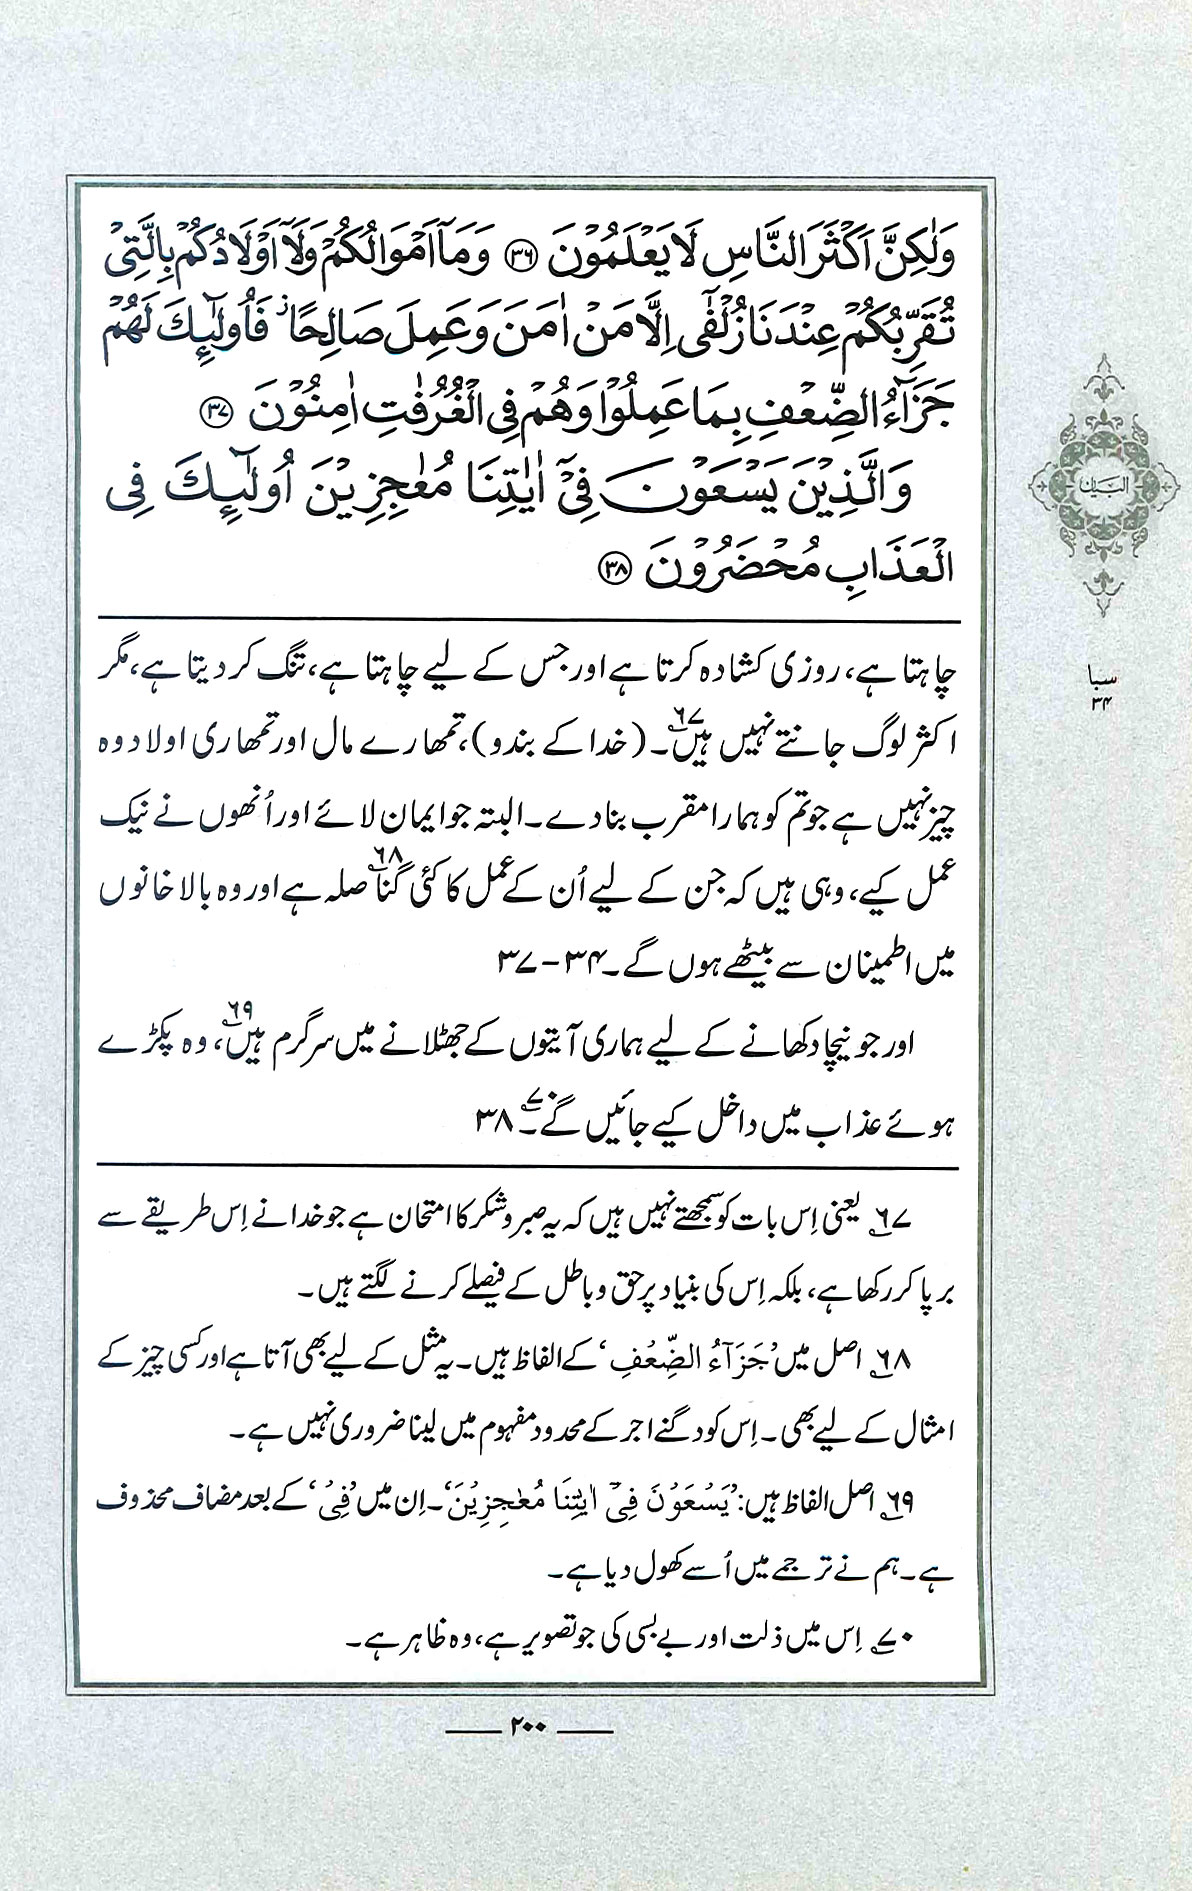 وَلٰكِنَّ اَكْثَرَ النَّاسِ لَا يَعْلَمُوْنَ ﴿۳۶﴾ وَمَآ اَمْوَالُكُمْ وَلَآ اَوْلَادُكُمْ بِالَّتِيْ
تُقَرِّبُكُمْ عِنْدَنَا زُلْفٰٓى اِلَّا مَنْ اٰمَنَ وَعَمِلَ صَالِحًا ۡ فَاُولٰٓئِكَ لَهُمْ
جَزَآءُ الضِّعْفِ بِمَا عَمِلُوْا وَهُمْ فِي الْغُرُفٰتِ اٰمِنُوْنَ ﴿۳۷﴾
وَالَّذِيْنَ يَسْعَوْنَ فِيْٓ اٰيٰتِنَا مُعٰجِزِيْنَ اُولٰٓئِكَ فِي
الْعَذَابِ مُحْضَرُوْنَ ﴿۳۸﴾
البیان
سبا
۳۴
چاہتا ہے، روزی کشادہ کرتا ہے اور جس کے لیے چاہتا ہے، تنگ کر دیتا ہے، مگر
اکثر لوگ جانتے نہیں ہیں۶۷۔ (خدا کے بندو)، تمھارے مال اور تمھاری اولاد وہ
چیز نہیں ہے جو تم کو ہمارا مقرب بنا دے۔ البتہ جو ایمان لائے اور اُنھوں نے نیک
عمل کیے، وہی ہیں کہ جن کے لیے اُن کے عمل کا کئی گنا۶۸ صلہ ہے اور وہ بالا خانوں
میں اطمینان سے بیٹھے ہوں گے۔ ۳۴-۳۷
اور جو نیچا دکھانے کے لیے ہماری آیتوں کے جھٹلانے میں سرگرم ہیں۶۹، وہ پکڑے
ہوئے عذاب میں داخل کیے جائیں گے۷۰۔ ۳۸
۶۷ یعنی اِس بات کو سمجھتے نہیں ہیں کہ یہ صبر و شکر کا امتحان ہے جو خدا نے اِس طریقے سے
برپا کر رکھا ہے، بلکہ اِس کی بنیاد پر حق و باطل کے فیصلے کرنے لگتے ہیں۔
۶۸ اصل میں ’جَزَآءُ الضِّعْفِ‘ کے الفاظ ہیں۔ یہ مثل کے لیے بھی آتا ہے اور کسی چیز کے
امثال کے لیے بھی۔ اِس کو دگنے اجر کے محدود مفہوم میں لینا ضروری نہیں ہے۔
۶۹ اصل الفاظ ہیں: ’يَسْعَوْنَ فِيْٓ اٰيٰتِنَا مُعٰجِزِيْنَ‘۔ اِن میں ’فِيْ‘ کے بعد مضاف محذوف
ہے۔ ہم نے ترجمے میں اُسے کھول دیا ہے۔
۷۰ اِس میں ذلت اور بے بسی کی جو تصویر ہے، وہ ظاہر ہے۔
۲۰۰